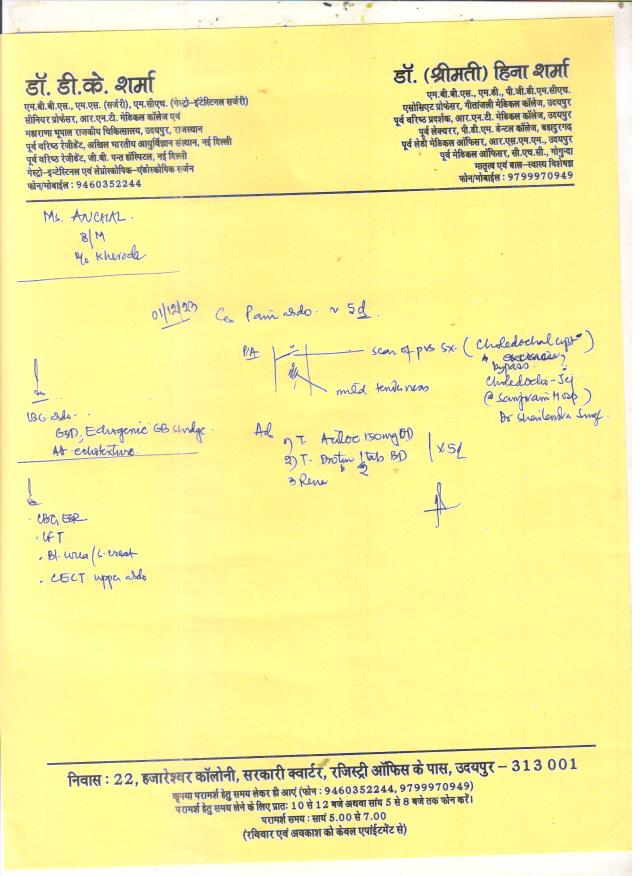 डॉ. डी.के. शर्मा
एम.बी.बी.एस., एम.एस. (सर्जरी), एम.सीएच. (गेस्ट्रो-इंटेस्टिनल सर्जरी)
सीनियर प्रोफेसर, आर.एन.टी. मेडिकल कॉलेज एवं
महाराणा भूपाल राजकीय चिकित्सालय, उदयपुर, राजस्थान
पूर्व वरिष्ठ रेजीडेंट, अखिल भारतीय आयुर्विज्ञान संस्थान, नई दिल्ली
पूर्व वरिष्ठ रेजीडेंट, जी.बी. पन्त हॉस्पिटल, नई दिल्ली
गेस्ट्रो-इन्टेस्टिनल एवं लेप्रोस्कोपिक-एंडोस्कोपिक सर्जन
फोन/मोबाईल : 9460352244
डॉ. (श्रीमती) हिना शर्मा
एम.बी.बी.एस., एम.डी., पी.जी.डी.एम.सीएच.
एसोसिएट प्रोफेसर, गीतांजली मेडिकल कॉलेज, उदयपुर
पूर्व वरिष्ठ प्रदर्शक, आर.एन.टी. मेडिकल कॉलेज, उदयपुर
पूर्व लेक्चरर, पी.डी.एम. डेन्टल कॉलेज, बहादुरगढ़
पूर्व लेडी मेडिकल ऑफिसर, आर.एस.एम.एम., उदयपुर
पूर्व मेडिकल ऑफिसर, सी.एच.सी., गोगुन्दा
मातृत्व एवं बाल-स्वास्थ्य विशेषज्ञ
फोन/मोबाईल : 9799970949
Ms. ANCHAL.
8/M
r/o Kheroda
01/12/23 C/o Pain abdo. ~ 5d.
P/A
scar of pvs Sx. (Choledochal cyst
bypass
Choledocho-Jej
(@ Sangram Hosp)
Dr Shailendra Singh
mild tenderness
USG abdo -
GBD, Echogenic GB sludge.
echotexture.
Ad
1) T. Aciloc 150mg BD
2) T- Drotin 1/2 tab BD
x5d
3
. CBC, ESR
. LFT
. Bl. urea/S. creat
. CECT upper abdo
निवास : 22, हजारेश्वर कॉलोनी, सरकारी क्वार्टर, रजिस्ट्री ऑफिस के पास, उदयपुर – 313 001
कृपया परामर्श हेतु समय लेकर ही आएं (फोन : 9460352244, 9799970949)
परामर्श हेतु समय लेने के लिए प्रातः 10 से 12 बजे अथवा सांय 5 से 8 बजे तक फोन करें।
परामर्श समय : सायं 5.00 से 7.00
(रविवार एवं अवकाश को केवल एपॉईंटमेंट से)